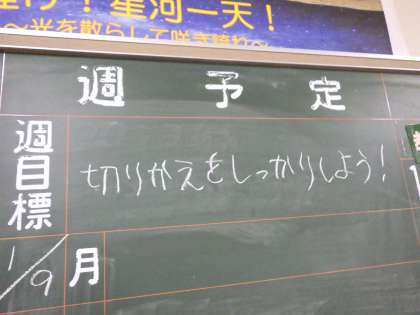 ！星河一天！
～光を散らして咲き誇れ～
週予定
週目標
切りかえをしっかりしよう！
1/9月